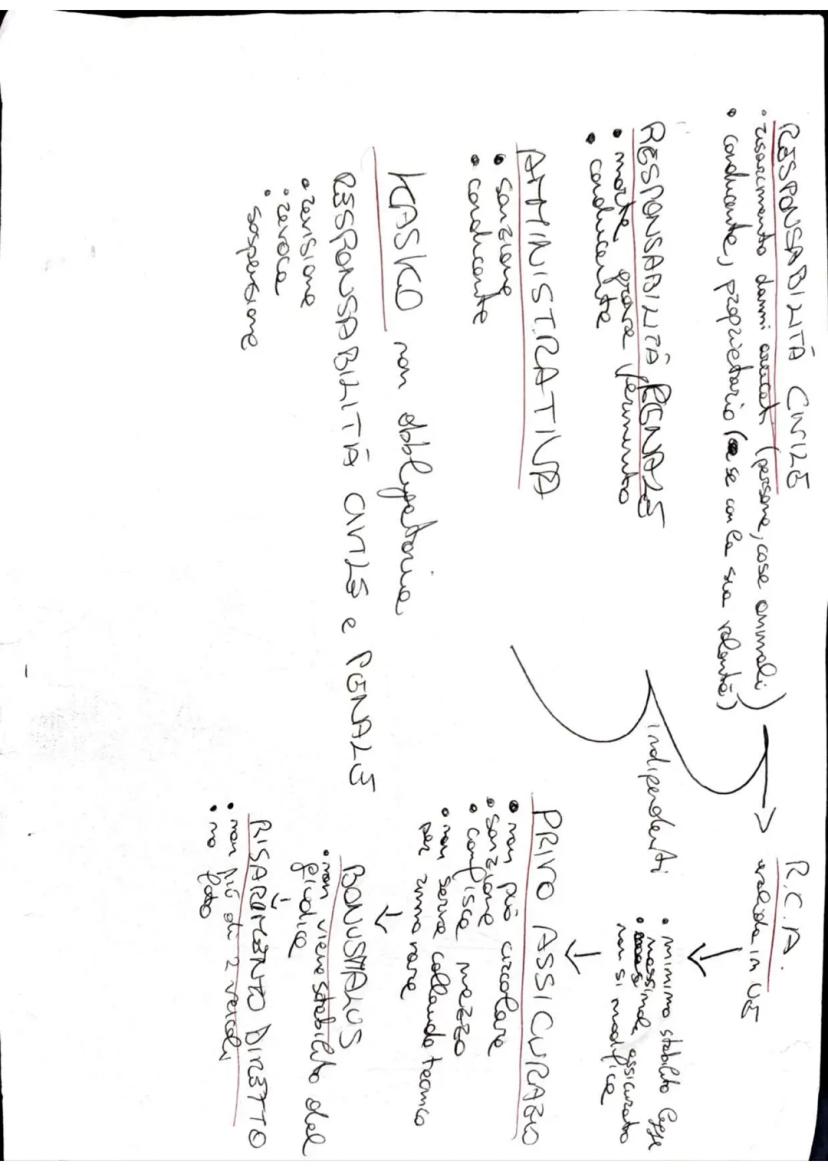 RESPONSABILITÀ CIVILE
• risarcimento danni causati (persone, cose animali)
• conducente, proprietario (se con la sua volontà)
RESPONSABILITÀ PENALE
• morte grave ferimento
• conducente
AMMINISTRATIVA
• sanzione
• conducente
KASKO non obbligatoria
RESPONSABILITÀ CIVILE e PENALE
• revisione
• revoca
• sospensione
indipendenti
R.C.A.
valida in UE
• minimo stabilito legge
• massimale assicurato
non si modifica
PRIVO ASSICURAZIO
• non può circolare
• sanzione
• confisca mezzo
• non serve collaudo tecnico
per rinnovare
BONUSMALUS
• non viene stabilito dal
giudice
RISARCIMENTO DIRETTO
• non più di 2 veicoli
• no